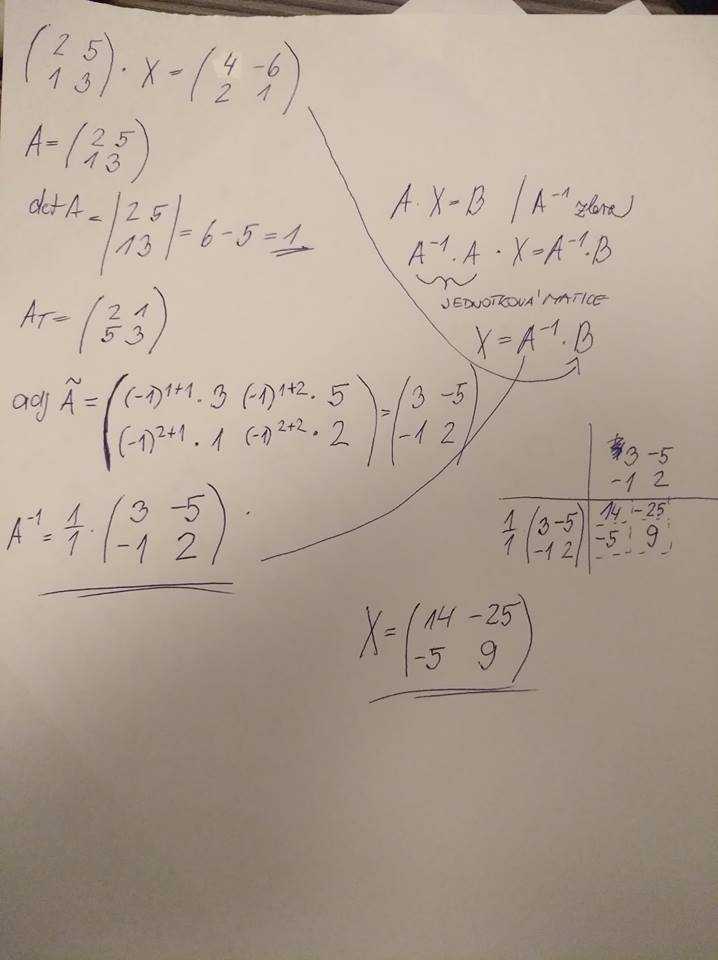 (2 5
1 3) · X = (4 -6
2 1)
A = (2 5
1 3)
det A = |2 5
1 3| = 6 - 5 = 1
A_T = (2 1
5 3)
adj Ã = ((-1)^1+1 · 3 (-1)^1+2 · 5
(-1)^2+1 · 1 (-1)^2+2 · 2) = (3 -5
-1 2)
A^-1 = 1/1 · (3 -5
-1 2)
A · X = B / A^-1 zleva
A^-1 · A · X = A^-1 · B
JEDNOTKOVÁ MATICE
X = A^-1 · B
3 -5
-1 2
1/1 (3 -5
-1 2) 14 -25
-5 9
X = (14 -25
-5 9)